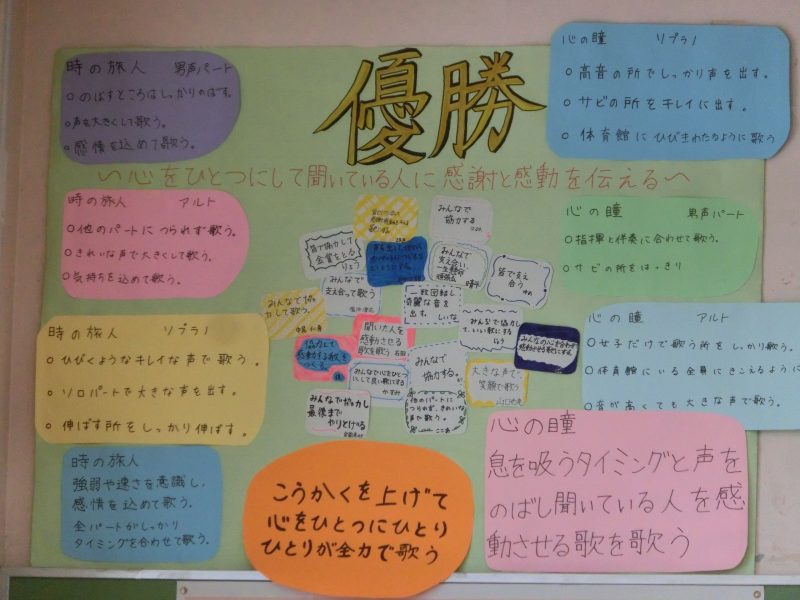 優勝
〜心をひとつにして聞いている人に感謝と感動を伝える〜
時の旅人 男声パート
○のばすところはしっかりのばす。
○声を大きくして歌う。
○感情を込めて歌う。
時の旅人 アルト
○他のパートにつられず歌う。
○きれいな声で大きくして歌う。
○気持ちを込めて歌う。
時の旅人 ソプラノ
○ひびくようなキレイな声で歌う。
○ソロパートで大きな声を出す。
○伸ばす所をしっかり伸ばす。
時の旅人
強弱や速さを意識し、
感情を込めて歌う。
全パートがしっかり
タイミングを合わせて歌う。
みんなで
協力する
皆で協力して
金賞をとる
りょう
みんなで
支え合い
一生懸命
頑張る
皆で支え
合う
みんなで
支え合って歌う
みんなで協
力して歌う。
一致団結し
綺麗な音を
出す。
みんなで協力し
て、いい歌にする
聞いた人を
感動させる
歌を歌う
協力して
感動する歌を
つくる。
みんなの心を合わせ
感動させる歌にする。
みんなで
協力する。
大きな声で
笑顔で歌う
みんなで心をひとつ
にして良い歌にする
かずみ
みんなで協力し
最後まで
やりとげる
他のパートに
つられず、きれいな
声で歌う。
心の瞳 ソプラノ
○高音の所でしっかり声を出す。
○サビの所をキレイに出す。
○体育館にひびきわたるように歌う
心の瞳 男声パート
○指揮と伴奏に合わせて歌う。
○サビの所をはっきり
心の瞳 アルト
○女子だけで歌う所をしっかり歌う。
○体育館にいる全員にきこえるように
○音が高くても大きな声で歌う。
心の瞳
息を吸うタイミングと声を
のばし聞いている人を感
動させる歌を歌う
こうかくを上げて
心をひとつにひとり
ひとりが全力で歌う